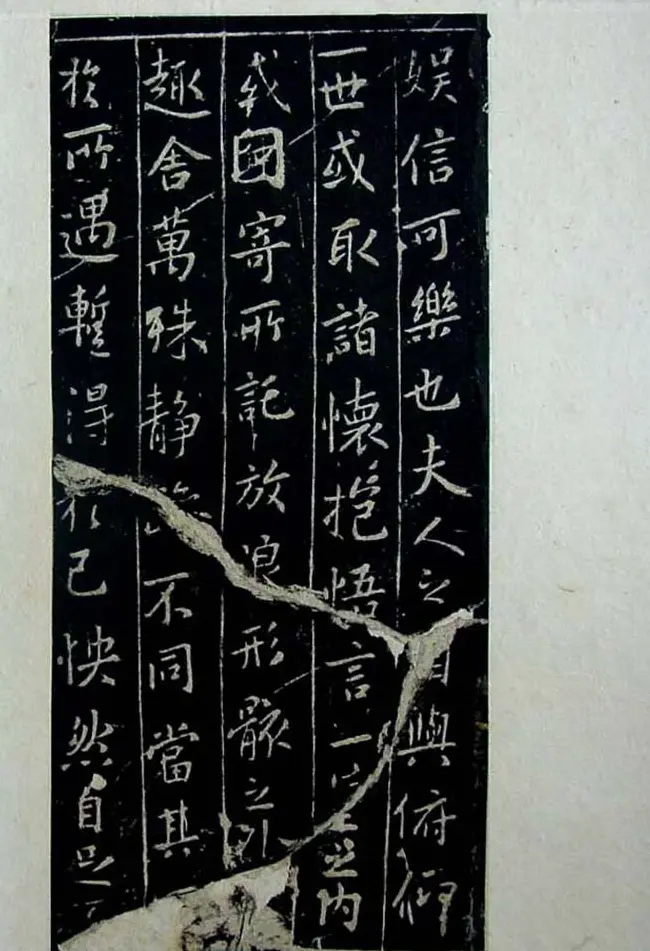 娛信可樂也夫人之相與俯仰
一世或取諸懷抱悟言一室之内
或因寄所託放浪形骸之外
趣舍萬殊静躁不同當其
於所遇蹔得於己怏然自足